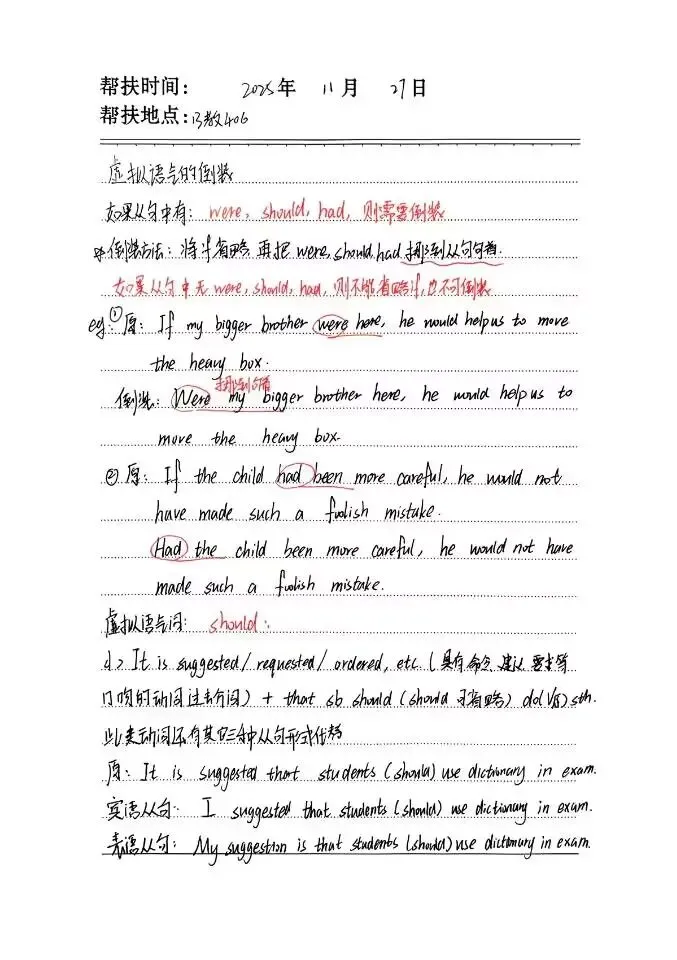 帮扶时间： 2025年 11月 27日
帮扶地点：B教406
虚拟语气的倒装
如果从句中有：were, should, had, 则需要倒装
倒装方法：将if省略，再把were, should, had 挪到从句句首.
如果从句中无were, should, had, 则不能省略if, 也不可倒装
eg. ①原：If my bigger brother were here, he would help us to move
the heavy box.
挪到句首
倒装：Were my bigger brother here, he would help us to
move the heavy box.
②原：If the child had been more careful, he would not
have made such a foolish mistake.
Had the child been more careful, he would not have
made such a foolish mistake.
虚拟语气词：should:
d> It is suggested/requested/ordered, etc. (具有命令 建议 要求等
口吻的动词过去分词) + that sb should (should 可省略) do(V原) sth.
此类动词还有其它三种从句形式代替
原：It is suggested that students (should) use dictionary in exam.
宾语从句：I suggested that students (should) use dictionary in exam.
表语从句：My suggestion is that students (should) use dictionary in exam.